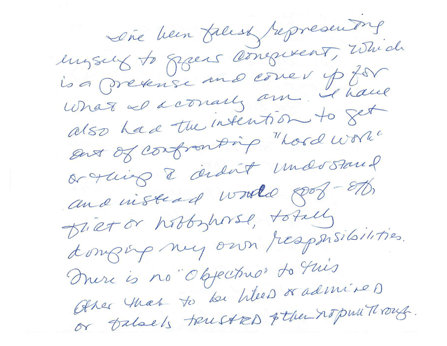 I've been falsely representing
myself to appear competent, which
is a pretense and cover up for
what I actually am. I have
also had the intention to get
out of confronting "hard work"
or things I didn't understand
and instead would goof-off,
flirt or hobbyhorse, totally
dumping my own responsibilities.
There is no "objective" to this
other than to be liked or admired
or falsely trusted & then not pull through.